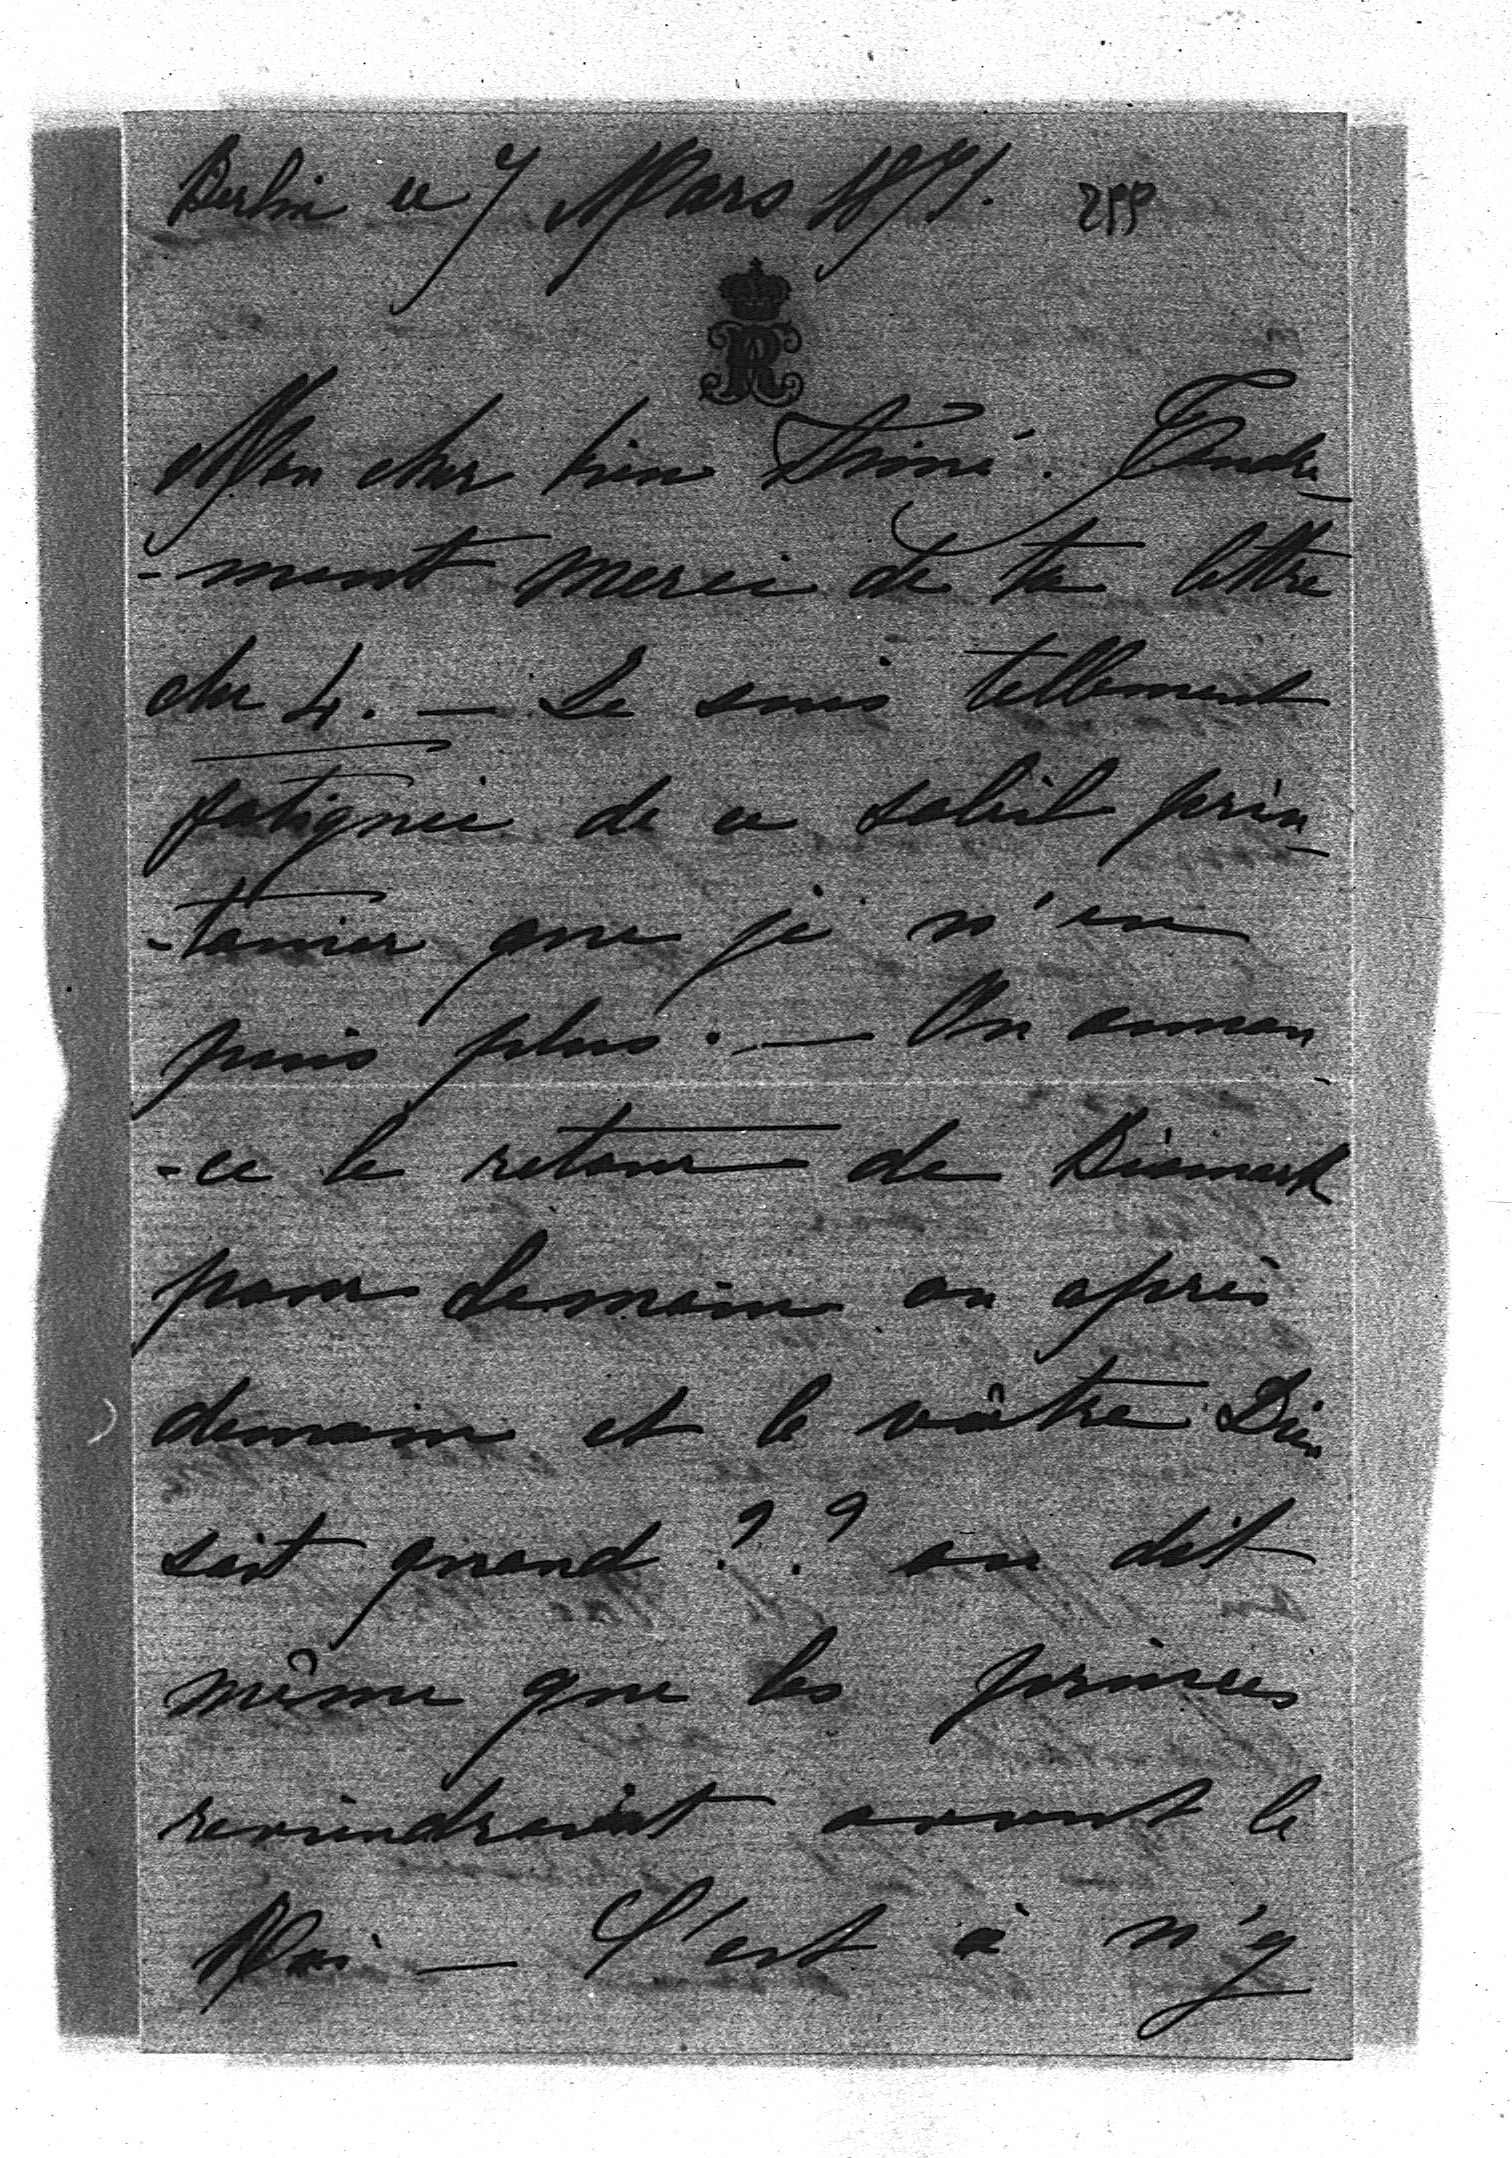 Berlin ce 7 Mars 1871. 255
R
Mon cher bien Aimé. Tendre-
-ment merci de ta lettre
cher L. — Je suis tellement
fatiguée de ce soleil prin-
-tanier que je n'en
puis plus. — On annon-
-ce le retour de Bismark
pour demain ou après
demain et le vôtre Dieu
sait quand ?? on dit
même que les princes
reviendraient avant le
Roi — C'est à n'y